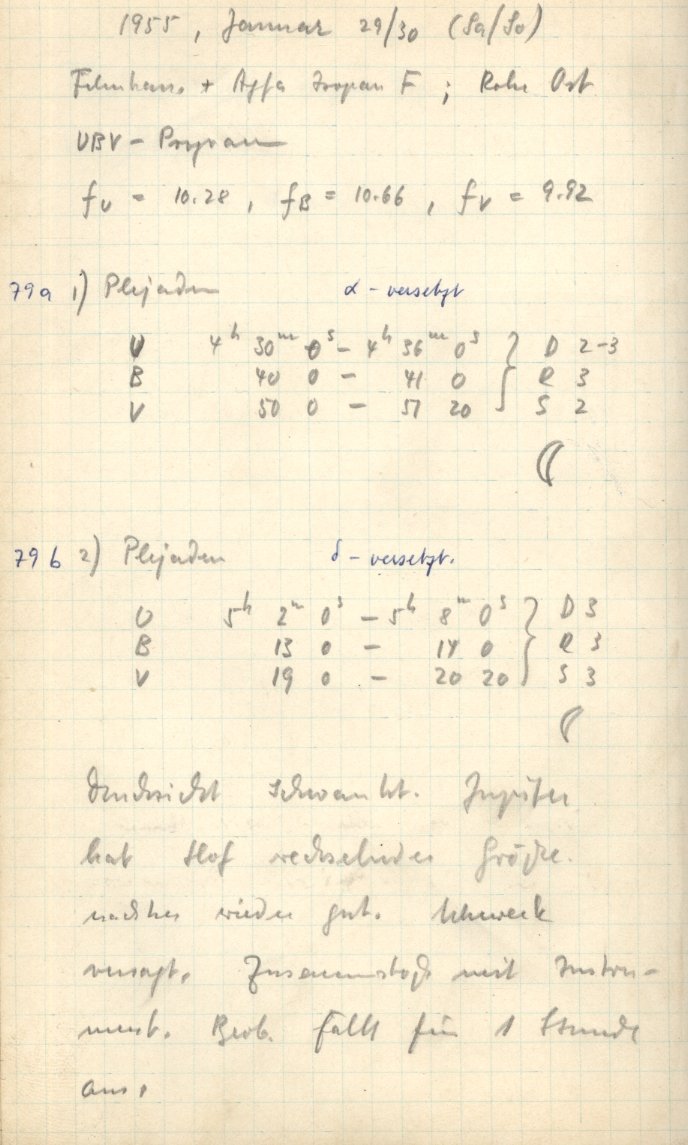 1955, Januar 29/30 (Sa/So)
+ Agfa Isopan F ; Rohr Ost
UBV - Programm
fU = 10.28, fB = 10.66, fV = 9.92
79a 1) Plejaden α - versetzt
U 4h 30m 0s - 4h 36m 0s } D 2-3
B 40 0 - 41 0 R 3
V 50 0 - 51 20 S 2
79b 2) Plejaden δ - versetzt.
U 5h 2m 0s - 5h 8m 0s } D 3
B 13 0 - 14 0 R 3
V 19 0 - 20 20 S 3
Durchsicht schwankt. Jupiter
hat Hof wechselnder Größe.
nachher wieder gut. Uhrwerk
versagt. Zusammenstoß mit Instru-
ment. Beob. fällt für 1 Stunde
aus.